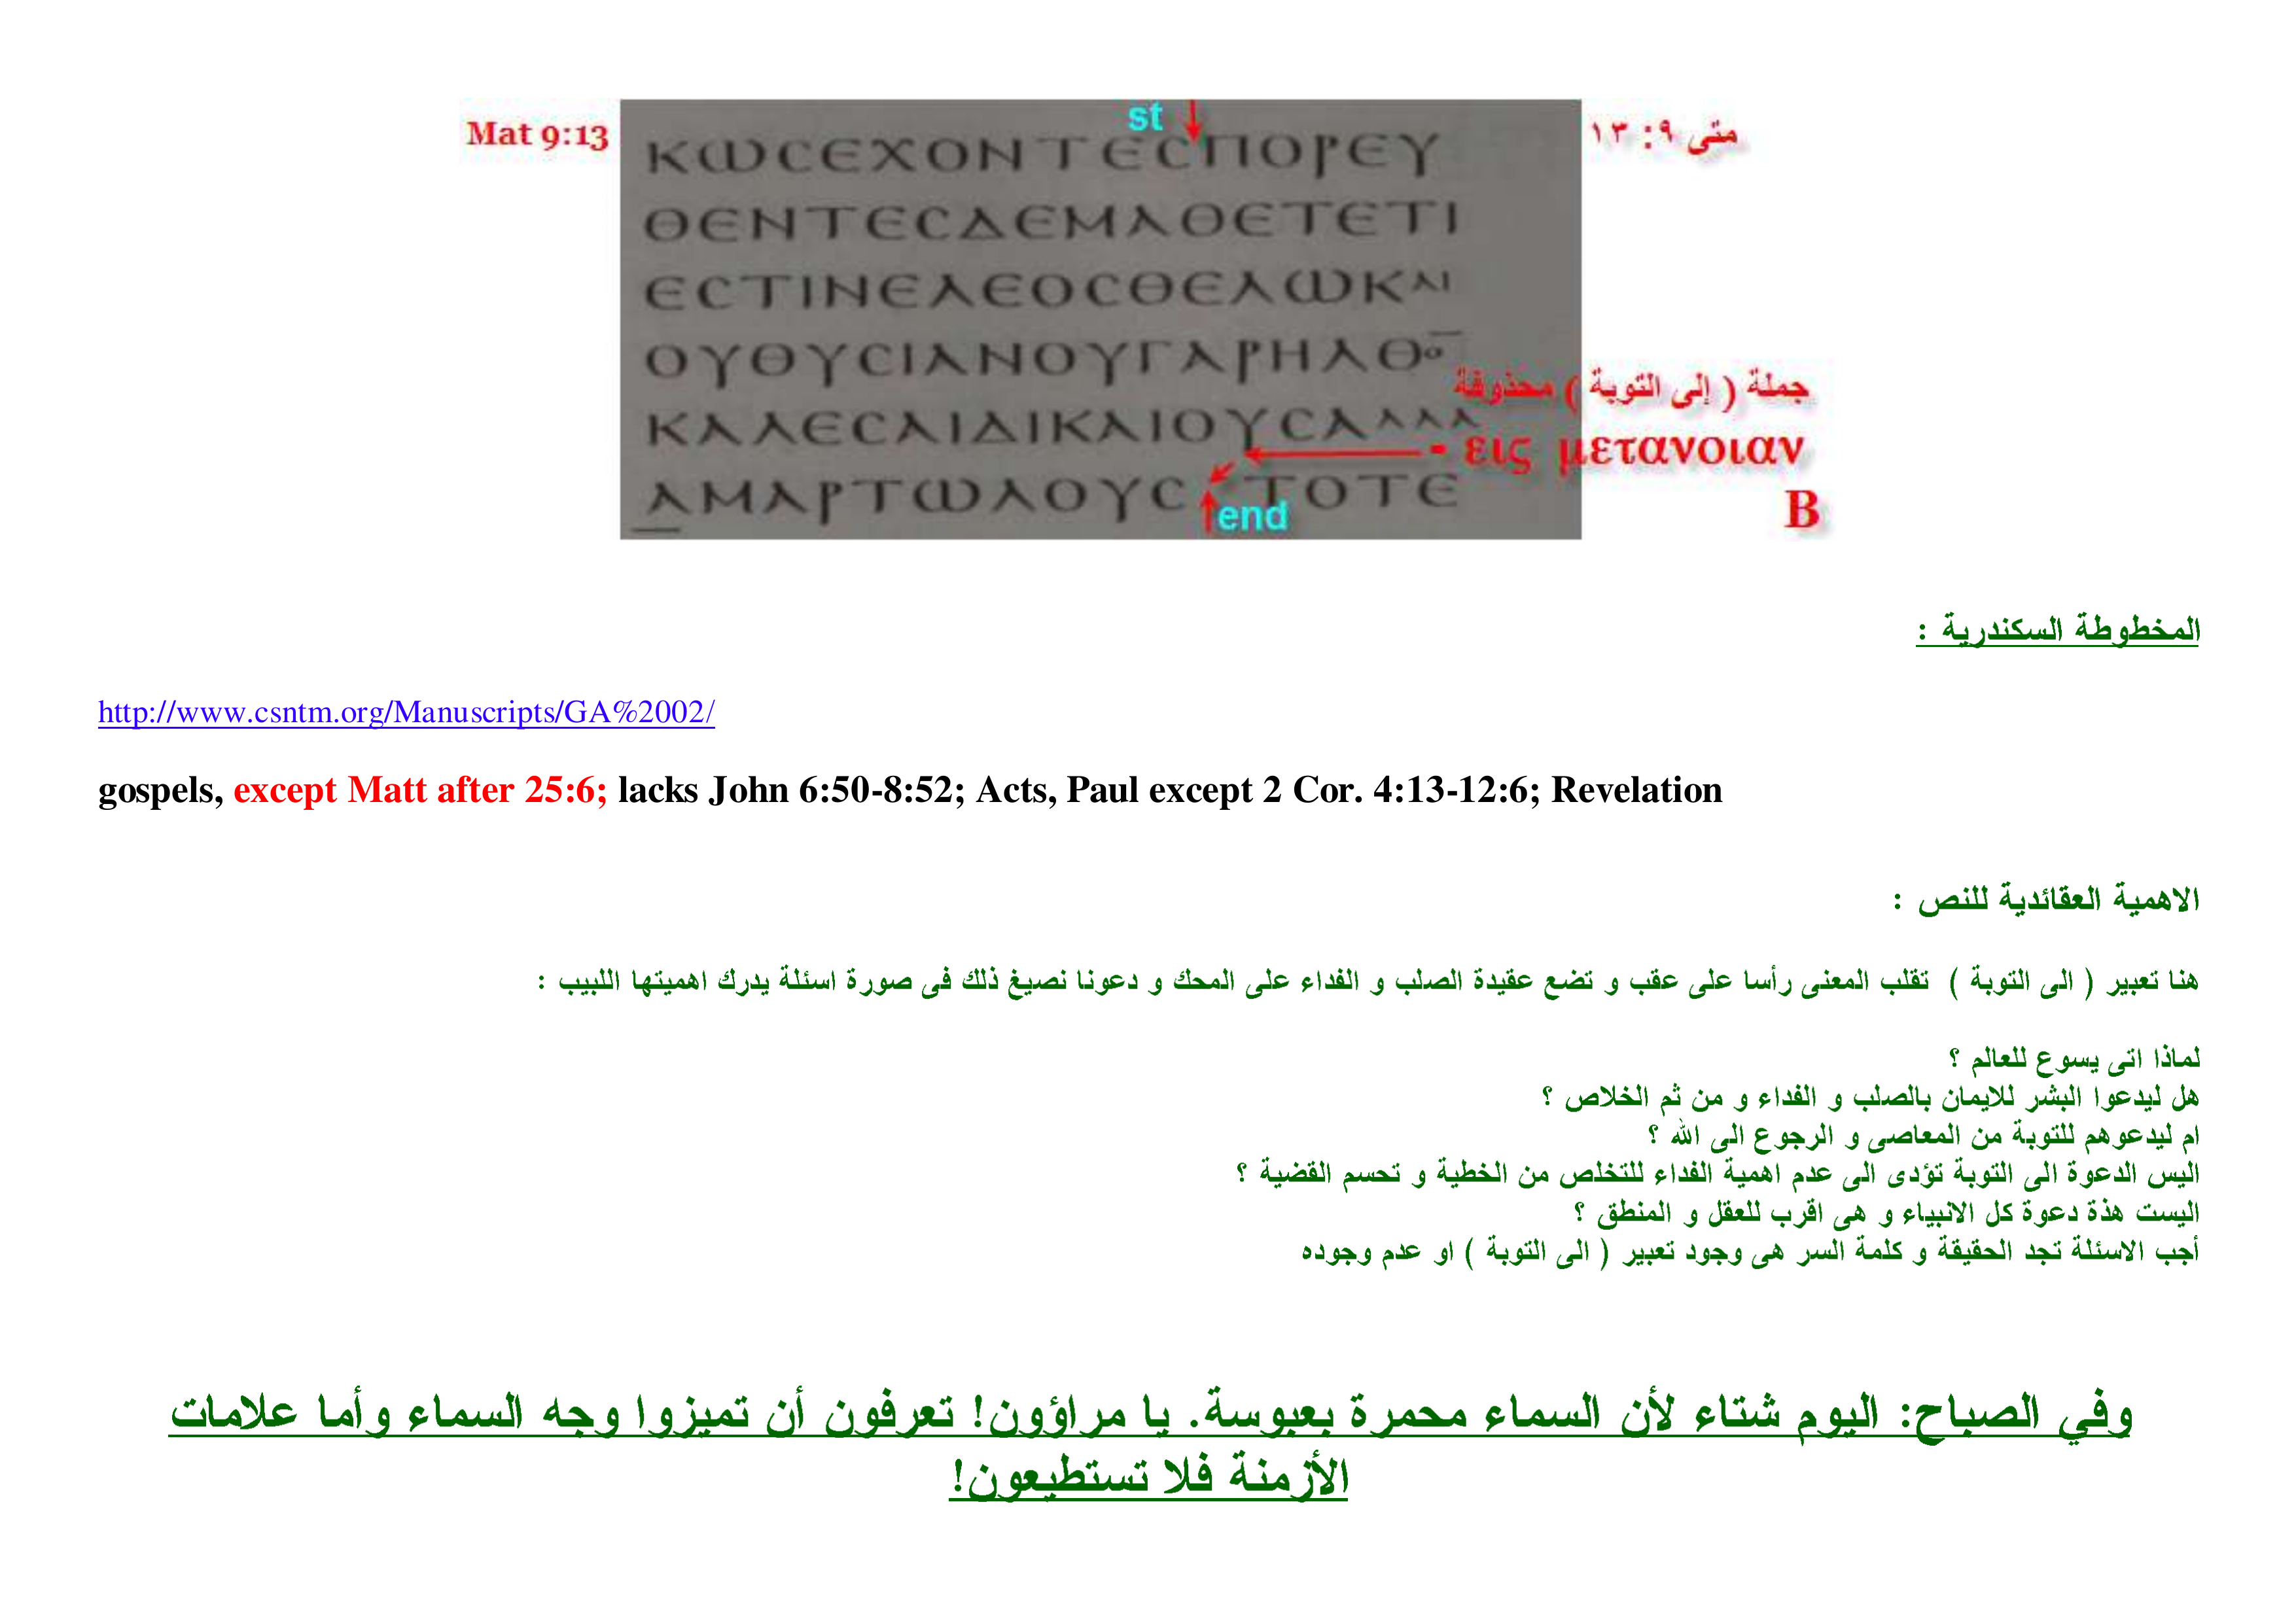 st
Mat 9:13
متى ٩: ١٣
ΚωϹΕΧΟΝΤΕϹΠΟΡΕΥ
ΘΕΝΤΕϹΔΕΜΑΘΕΤΕΤΙ
ΕϹΤΙΝΕΛΕΟϹΘΕΛωΚΑΙ
ΟΥΘΥϹΙΑΝΟΥΓΑΡΗΛΘΟ̅
جملة ( إلى التوبة ) محذوفة
ΚΑΛΕϹΑΙΔΙΚΑΙΟΥϹΑΛΛΑ
- εις μετανοιαν
ΑΜΑΡΤωΛΟΥϹ ΤΟΤΕ
end
B
المخطوطة السكندرية :
http://www.csntm.org/Manuscripts/GA%2002/
gospels, except Matt after 25:6; lacks John 6:50-8:52; Acts, Paul except 2 Cor. 4:13-12:6; Revelation
الاهمية العقائدية للنص :
هنا تعبير ( الى التوبة ) تقلب المعنى رأسا على عقب و تضع عقيدة الصلب و الفداء على المحك و دعونا نصيغ ذلك فى صورة اسئلة يدرك اهميتها اللبيب :
لماذا اتى يسوع للعالم ؟
هل ليدعوا البشر للايمان بالصلب و الفداء و من ثم الخلاص ؟
ام ليدعوهم للتوبة من المعاصى و الرجوع الى الله ؟
اليس الدعوة الى التوبة تؤدى الى عدم اهمية الفداء للتخلص من الخطية و تحسم القضية ؟
اليست هذة دعوة كل الانبياء و هى اقرب للعقل و المنطق ؟
أجب الاسئلة تجد الحقيقة و كلمة السر هى وجود تعبير ( الى التوبة ) او عدم وجوده
وفي الصباح: اليوم شتاء لأن السماء محمرة بعبوسة. يا مراؤون! تعرفون أن تميزوا وجه السماء وأما علامات
الأزمنة فلا تستطيعون!